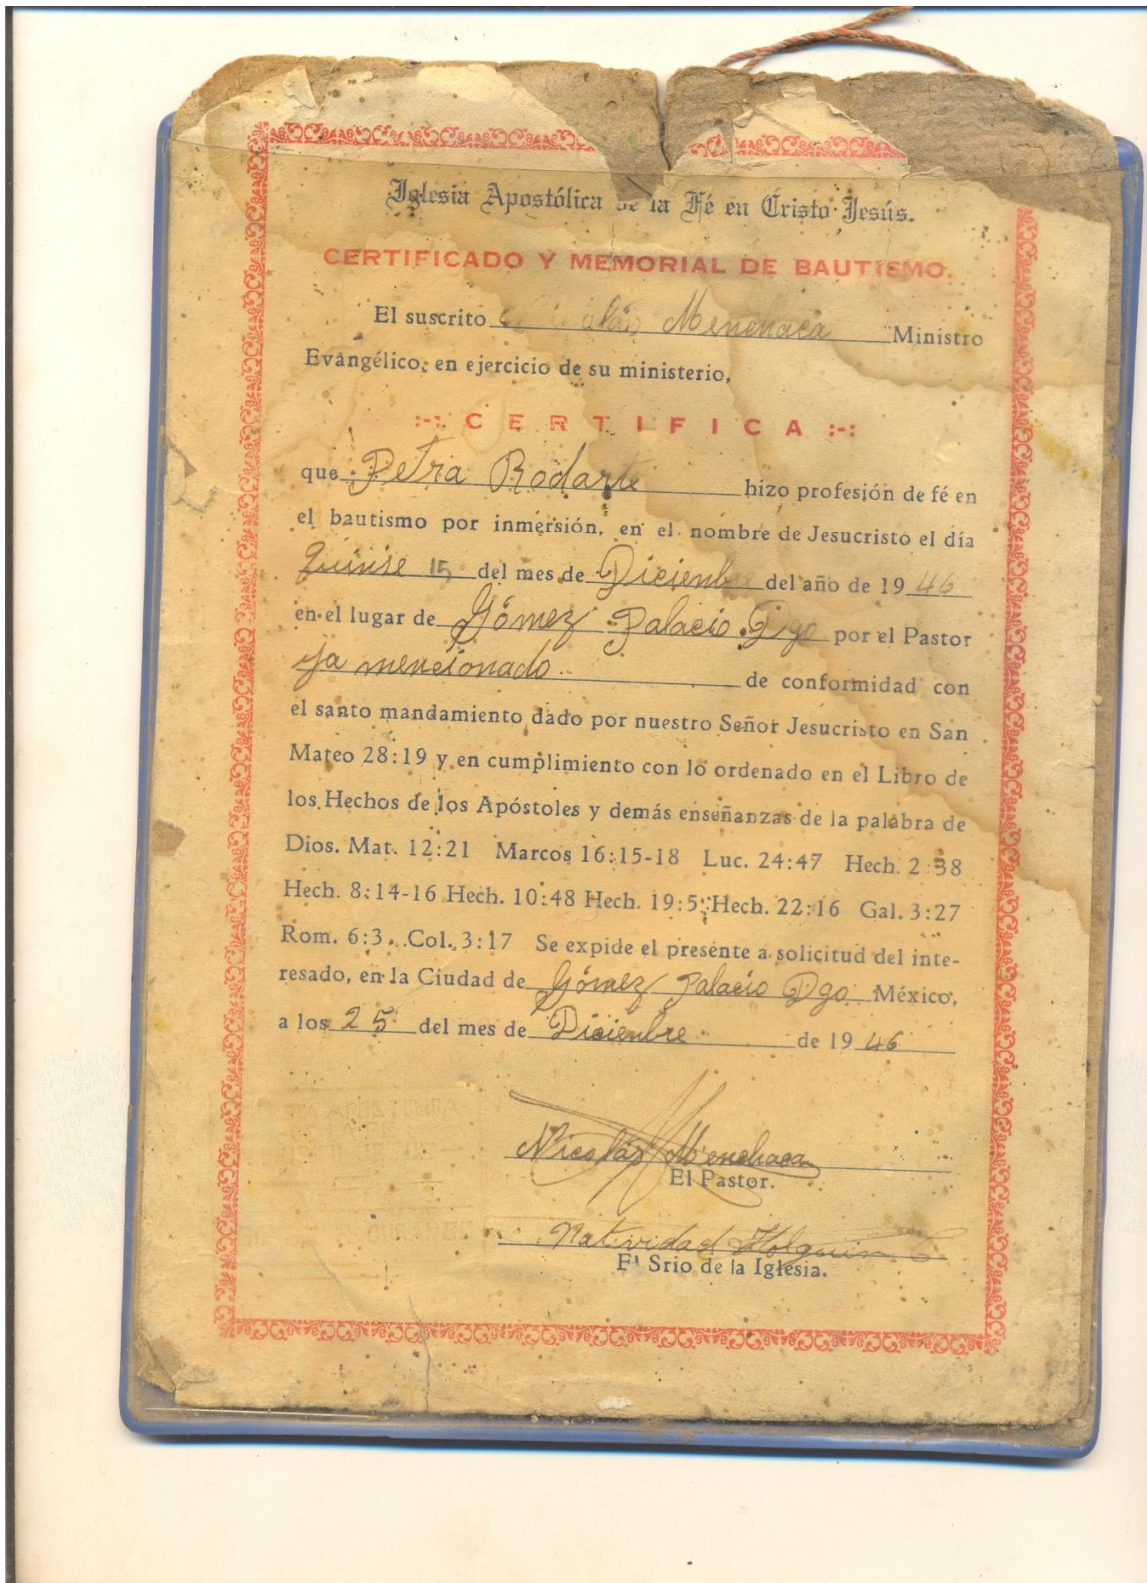 Iglesia Apostólica de la Fé en Cristo Jesús.
CERTIFICADO Y MEMORIAL DE BAUTISMO.
El suscrito Menchaca Ministro
Evangélico, en ejercicio de su ministerio,
:-: CERTIFICA :-:
que Petra Rodarte hizo profesión de fé en
el bautismo por inmersión, en el nombre de Jesucristo el día
Quinse 15 del mes de Diciembre del año de 1946
en el lugar de Gómez Palacio Dgo por el Pastor
ya mencionado de conformidad con
el santo mandamiento dado por nuestro Señor Jesucristo en San
Mateo 28:19 y en cumplimiento con lo ordenado en el Libro de
los Hechos de los Apóstoles y demás enseñanzas de la palabra de
Dios. Mat. 12:21 Marcos 16:15-18 Luc. 24:47 Hech. 2:38
Hech. 8:14-16 Hech. 10:48 Hech. 19:5 Hech. 22:16 Gal. 3:27
Rom. 6:3. Col. 3:17 Se expide el presente a solicitud del inte-
resado, en la Ciudad de Gómez Palacio Dgo México,
a los 25 del mes de Diciembre de 1946
Nicolás Menchaca
El Pastor.
Natividad Holguin
El Srio de la Iglesia.